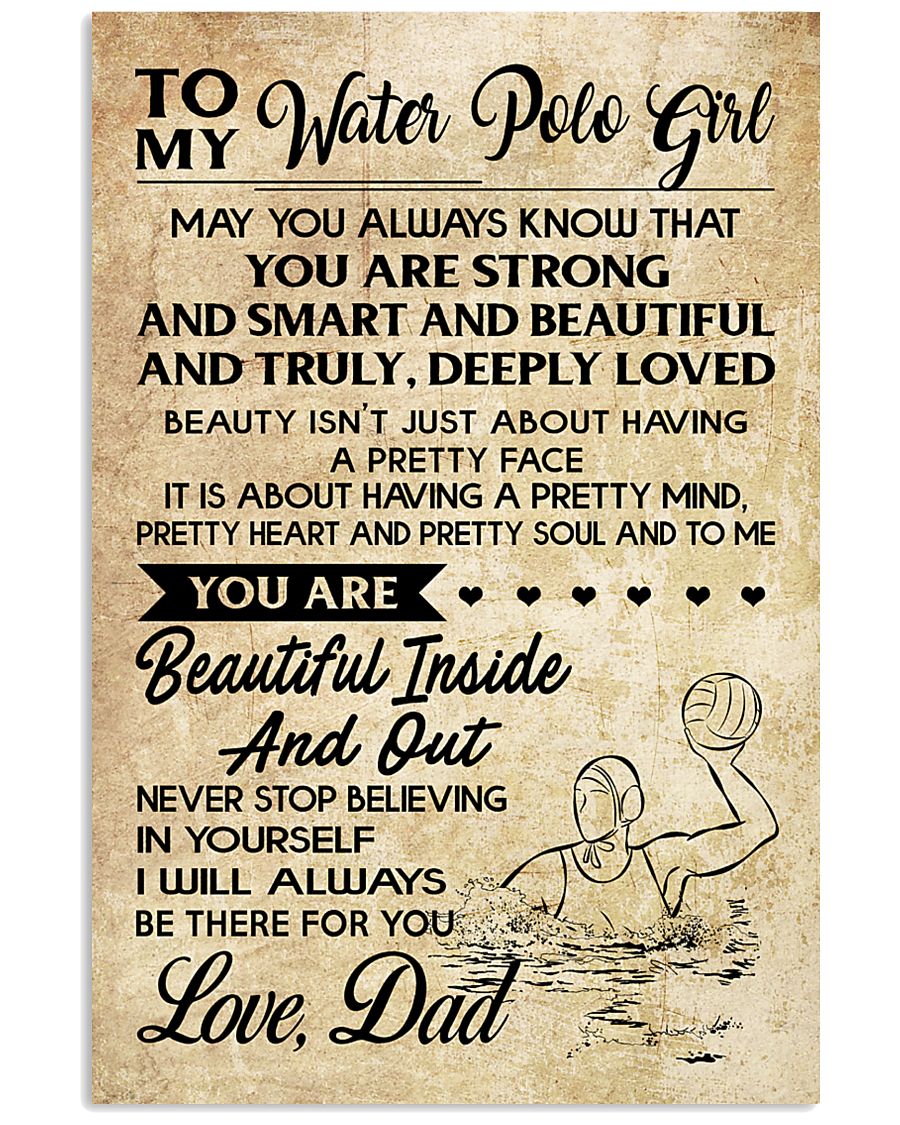 TO MY Water Polo Girl
MAY YOU ALWAYS KNOW THAT
YOU ARE STRONG
AND SMART AND BEAUTIFUL
AND TRULY, DEEPLY LOVED
BEAUTY ISN'T JUST ABOUT HAVING
A PRETTY FACE
IT IS ABOUT HAVING A PRETTY MIND,
PRETTY HEART AND PRETTY SOUL AND TO ME
YOU ARE
Beautiful Inside
And Out
NEVER STOP BELIEVING
IN YOURSELF
I WILL ALWAYS
BE THERE FOR YOU
Love, Dad